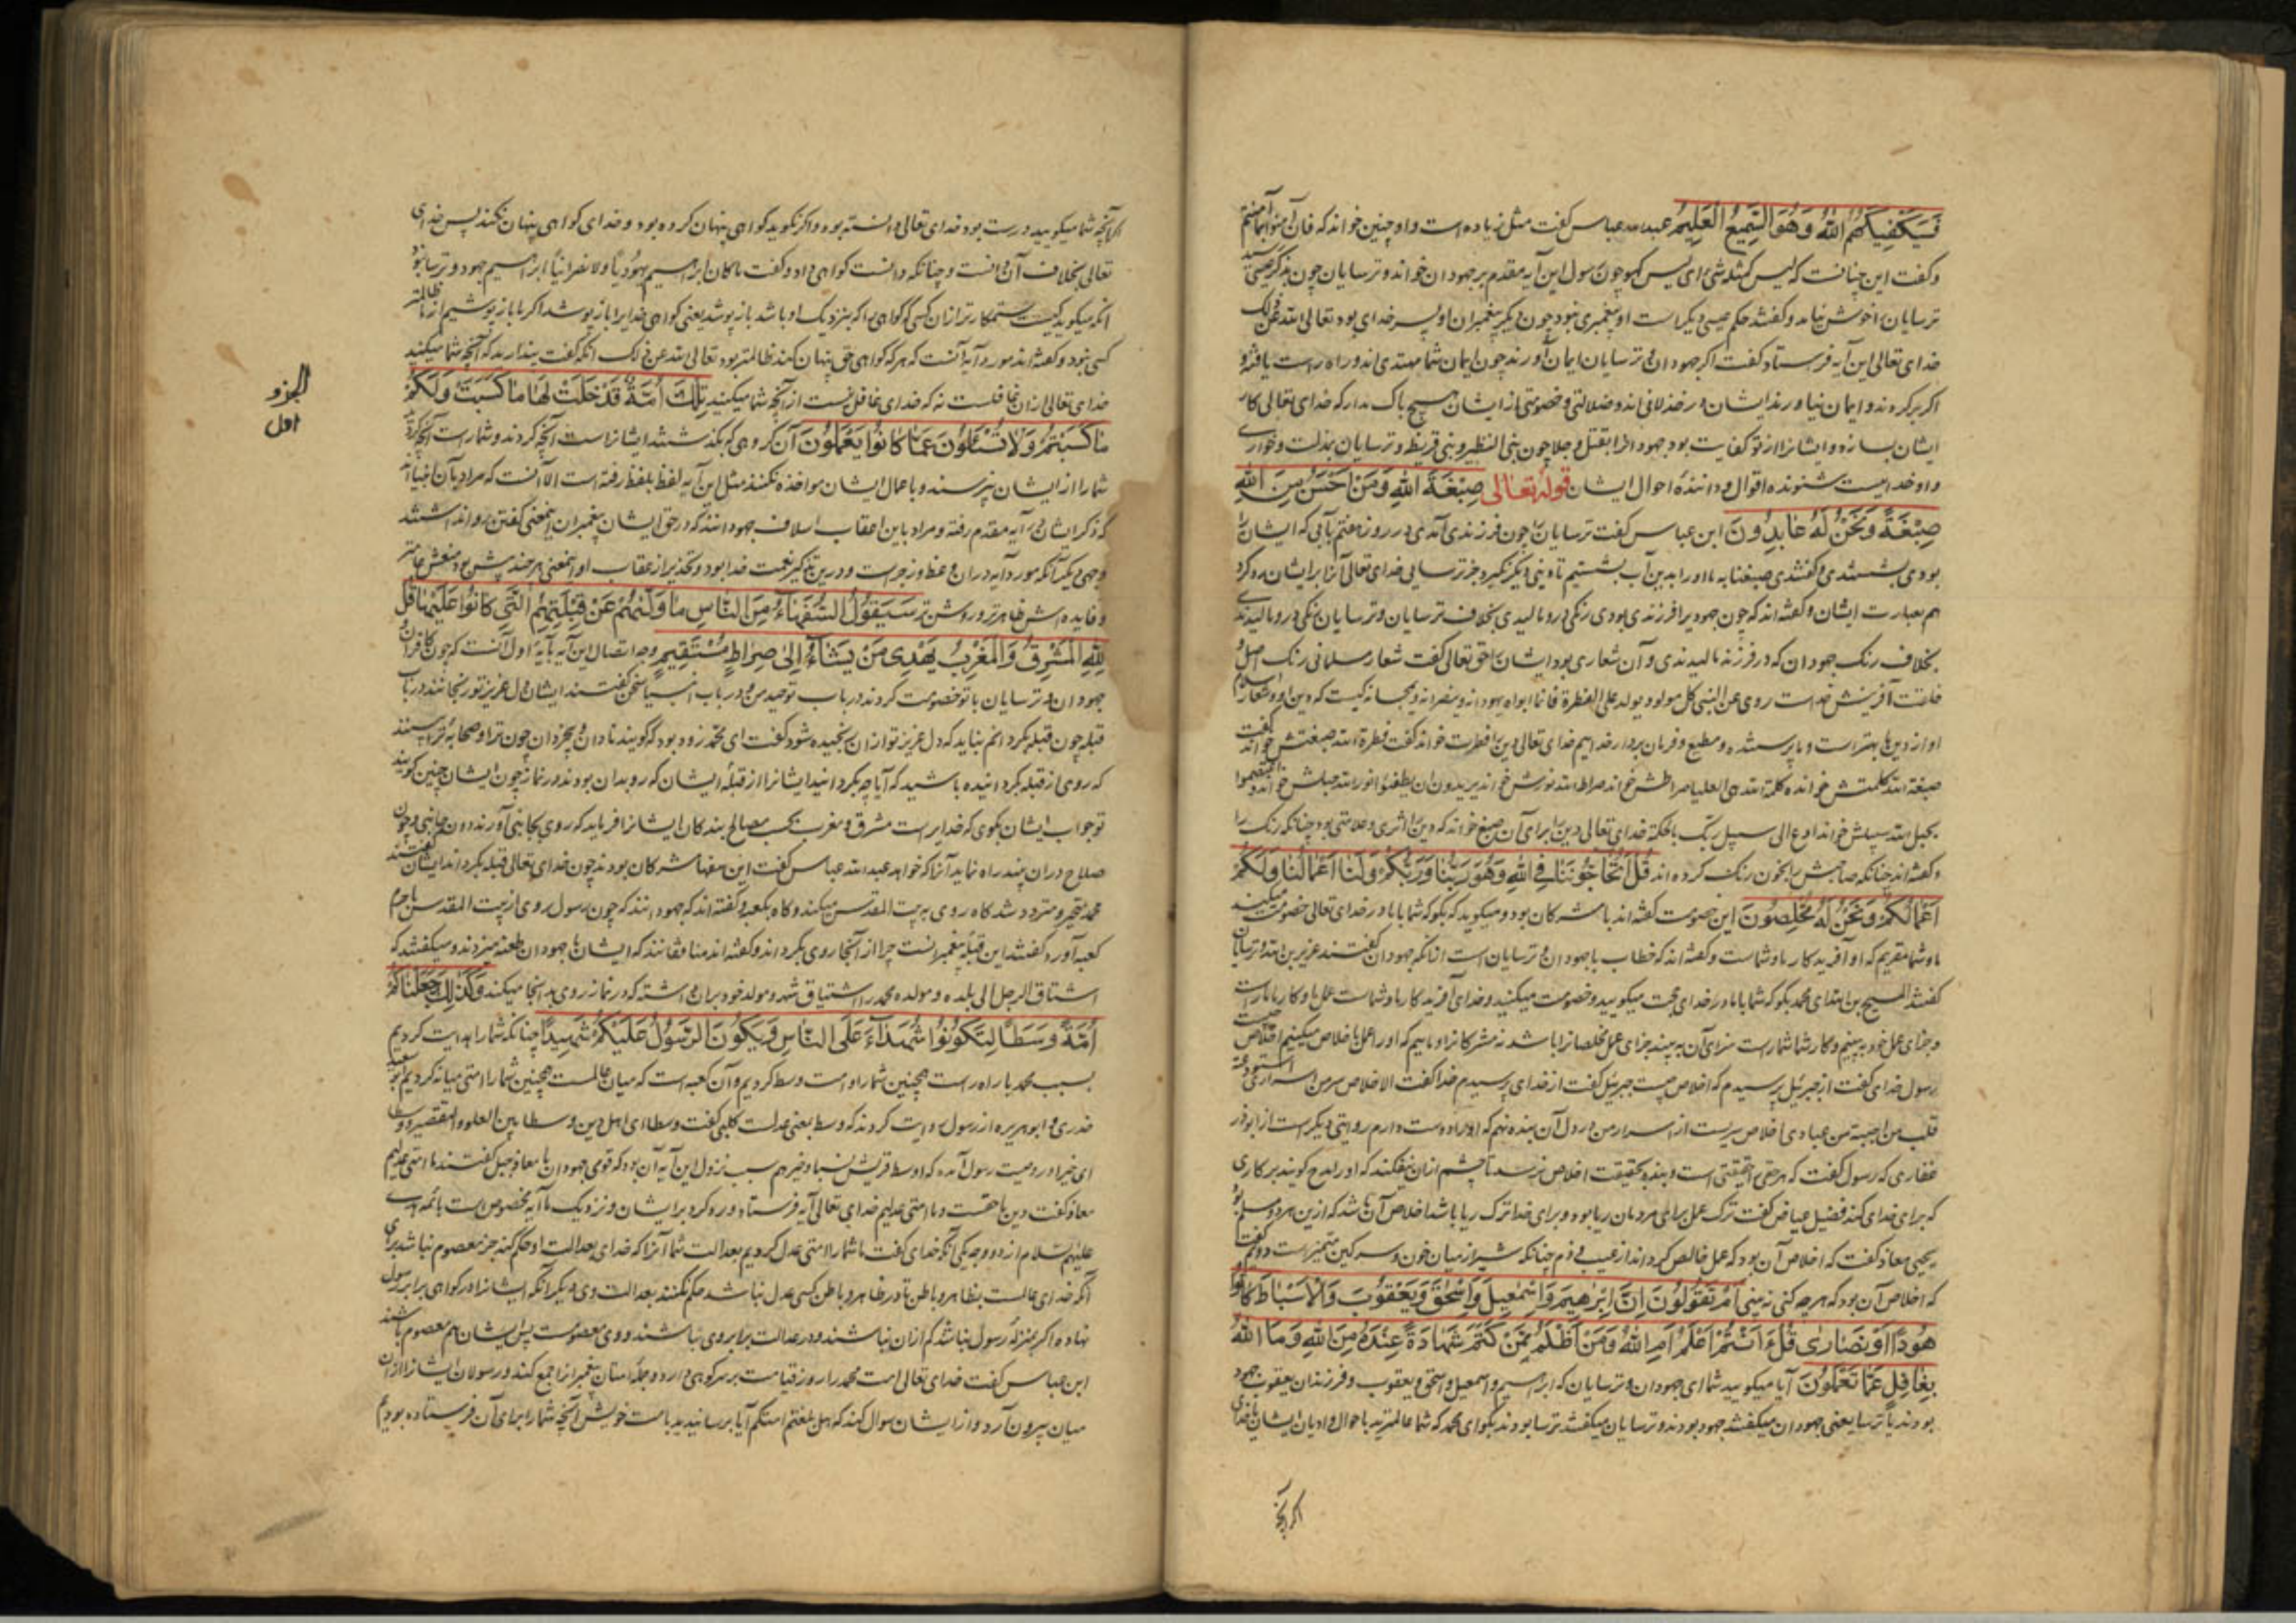 فَسَيَكْفِيكَهُمُ اللّهُ وَهُوَ السَّمِيعُ الْعَلِيمُ عبدالله عباس گفت مثل زیاده است و او چنین خواند که فان آمنوا بما آمنتم
و گفت این چنانست که لیس کمثله شیء ای لیس کهو چون رسول این آیه مقدم بر جهودان خواند و ترسایان چون بذکر عیسی رسید
ترسایان را خوش نیامد و گفتند حکم عیسی دیگر است او پیغمبری نبود چون دیگر پیغمبران او پسر خدای بود تعالی الله عن ذلک
خدای تعالی این آیه فرستاد گفت اگر جهودان و ترسایان ایمان آورند چون ایمان شما مهتدی اند و راه راست یافته و
اگر برگردند و ایمان نیاورند ایشان در خذلانی اند و ضلالتی و خصومتی از ایشان هیچ باک مدار که خدای تعالی کار
ایشان بسازد و ایشانرا از تو کفایت بود جهودانرا بقتل و جلا چون بنی النظیر و بنی قریظه و ترسایان بمذلت و خواری
و او خداییست شنونده اقوال و داننده احوال ایشان قوله تعالی صِبْغَةَ اللّهِ وَمَنْ أَحْسَنُ مِنَ اللّهِ
صِبْغَةً وَنَحْنُ لَهُ عَابِدُونَ ابن عباس گفت ترسایان را چون فرزندی آمدی در روز هفتم بآبی که ایشان را
بودی بشستندی و گفتندی صبغناه ما او را بدین آب بشستیم تا دینی دیگر نگیرد جز ترسایی خدای تعالی آنرا بر ایشان رد کرد
هم بعبارت ایشان و گفته اند که چون جهود را فرزندی بودی رنگی درو مالیدی بخلاف ترسایان و ترسایان رنگی درو مالیدندی
بخلاف رنگ جهودان که در فرزند مالیدندی و آن شعاری بود ایشان را حق تعالی گفت شعار مسلمانی رنگ اصل و
خلقت آفرینش خداست روی عن النبی کل مولود یولد علی الفطرة فانما ابواه یهودانه وینصرانه ویمجسانه کیست که دین او و شعار اسلام
او از دین ها بهتر است و ما پرستنده و مطیع و فرمان بردار خداییم خدای تعالی دین را فطرت خواند گفت فطرة الله صبغتش خواند گفت
صبغة الله کلمتش خواند کلمة الله هی العلیا صراطش خواند صراط الله نورش خواند یریدون ان یطفئوا نور الله حبلش خواند و اعتصموا
بحبل الله سبیلش خواند ادع الی سبیل ربک بالحکمة خدای تعالی دین را برای آن صبغ خواند که دین را اثری و علامتی بود چنانکه رنگ را
و گفته اند چنانکه صاحبش را بخون رنگ کرده اند قُلْ أَتُحَاجُّونَنَا فِي اللّهِ وَهُوَ رَبُّنَا وَرَبُّكُمْ وَلَنَا أَعْمَالُنَا وَلَكُمْ
أَعْمَالُكُمْ وَنَحْنُ لَهُ مُخْلِصُونَ این خصومت گفته اند با مشرکان بود و میگوید که بگو که شما با ما در خدای تعالی خصومت میکنید
ما و شما مقریم که او آفریدگار ما و شماست و گفته اند که خطاب با جهودان و ترسایان است ازانکه جهودان گفتند عزیر بن الله و ترسایان
گفتند المسیح بن الله ای محمد بگو که شما با ما در خدای حجت میگویید و خصومت میکنید و خدای آفریدگار ما و شماست عمل ما و کار ما ما راست
و جزای عمل خود ببینیم و کار شما شما راست سزای آن ببینید جزای عمل مخلصانرا باشد نه مشرکانرا و ماییم که او را عمل باخلاص میکنیم اخلاص چیست
رسول خدای گفت از جبرئیل پرسیدم که اخلاص چیست جبرئیل گفت از خدای پرسیدم خدا گفت الاخلاص سر من اسراری استودعته
قلب من احببته من عبادی اخلاص سریست از اسرار من در دل آن بنده نهم که او را دوست دارم روایتی دیگر است از ابوذر
غفاری که رسول گفت که هر حقی را حقیقتی است و بنده بحقیقت اخلاص نرسد تا چشم ازان نیفکند که او را مدح گویند بر کاری
که برای خدای کند فضیل عیاض گفت ترک عمل برای مردمان ریا بود و برای خدا ترک ریا باشد اخلاص آن باشد که ازین هر دو سلیم بود
یحیی معاذ گفت که اخلاص آن بود که عمل خالص کرداند از عیب و ذم چنانکه شیر از میان خون و سرگین متمیز است دویم گفت
که اخلاص آن بود که هر چه کنی نبینی أَمْ تَقُولُونَ إِنَّ إِبْرَهِيمَ وَإِسْمَعِيلَ وَإِسْحَقَ وَيَعْقُوبَ وَالْأَسْبَاطَ كَانُوا
هُودًا أَوْ نَصَارَى قُلْ ءَأَنْتُمْ أَعْلَمُ أَمِ اللّهُ وَمَنْ أَظْلَمُ مِمَّنْ كَتَمَ شَهَادَةً عِنْدَهُ مِنَ اللّهِ وَمَا اللّهُ
بِغَافِلٍ عَمَّا تَعْمَلُونَ آیا میگویید شما ای جهودان و ترسایان که ابراهیم و اسمعیل و اسحق و یعقوب و فرزندان یعقوب جهود
بودند یا ترسا یعنی جهودان میگفتند جهود بودند و ترسایان میگفتند ترسا بودند بگو ای محمد که شما عالمترید باحوال و ادیان ایشان یا خدای
اگر آنچه
اگر آنچه شما میگویید درست بود خدای تعالی دانسته بود و اگر نگوید گواهی پنهان کرده بود و خدای گواهی پنهان نکند پس خدای
تعالی بخلاف آن دانست و چنانکه دانست گواهی داد و گفت ما کان ابراهیم یهودیاً ولا نصرانیاً ابراهیم جهود و ترسا نبود
آنکه میگوید کیست ستمکارتر ازان کسی که گواهی را که بنزدیک او باشد باز پوشد یعنی گواهی خدایرا باز پوشد اگر ما باز پوشیم از ما ظالمتر
کسی نبود و گفته اند مورد آیه آنست که هر که گواهی حق پنهان کند ظالمتر بود تعالی الله عن ذلک آنکه گفت مپندارید که آنچه شما میکنید
خدای تعالی ازان غافلست نه که خدای غافل نیست از آنچه شما میکنید تِلْكَ أُمَّةٌ قَدْ خَلَتْ لَهَا مَا كَسَبَتْ وَلَكُمْ
مَا كَسَبْتُمْ وَلَا تُسْئَلُونَ عَمَّا كَانُوا يَعْمَلُونَ آن گروهی که بگذشتند ایشانراست آنچه کردند و شما راست آنچه کردید
شما را از ایشان نپرسند و باعمال ایشان مواخذه نکنند مثل این آیه لفظ بلفظ رفته است الا آنست که مراد بآن انبیااند
که ذکر ایشان در آیه مقدم رفته و مراد باین اعقاب اسلاف جهودانند که در حق ایشان پیغمبران اینمعنی گفتن روا داشتند
وجهی دیگر آنکه مورد آیه دران وعظ و زجر است و درین تذکیر نعمت خدا بود و تحذیر از عقاب او اینمعنی هر چند پیش بود منعش عامتر
و فایده اش ظاهرتر و روشن تر سَيَقُولُ السُّفَهَاءُ مِنَ النَّاسِ مَا وَلَّيهُمْ عَنْ قِبْلَتِهِمُ الَّتِي كَانُوا عَلَيْهَا قُلْ
لِلّهِ الْمَشْرِقُ وَالْمَغْرِبُ يَهْدِي مَنْ يَشَاءُ إِلَى صِرَاطٍ مُسْتَقِيمٍ وجه اتصال این آیه بآیه اول آنست که چون کافران و
جهودان و ترسایان با تو خصومت کردند در باب توحید من و در باب انبیا سخن گفتند ایشان دل عزیز تو رنجانند در باب
قبله چون قبله بگردانم نباید که دل عزیز تو ازان رنجیده شود گفت ای محمد زود بود که گویند نادان و بیخردان چون ترا و صحابه ترا بینند
که روی از قبله بگردانیده باشید که آیا چه بگردانید ایشانرا از قبله ایشان که رو بدان بودند در نماز چون ایشان چنین گویند
تو جواب ایشان بگوی که خدایراست مشرق و مغرب بحسب مصالح بندگان ایشانرا فرماید که روی بجانبی آورند دون جانبی و چون
صلاح دران بیند راه نماید آنرا که خواهد عبدالله عباس گفت این سفها مشرکان بودند چون خدای تعالی قبله بگرداند ایشان گفتند
محمد متحیر و متردد شد گاه روی به بیت المقدس میکند و گاه بکعبه و گفته اند که جهودانند که چون رسول روی از بیت المقدس با حرم
کعبه آورد گفتند این قبله پیغمبرانست چرا از آنجا روی بگرداند و گفته اند منافقانند که ایشان با جهودان طعنه میزدند و میگفتند که
اشتاق الرجل الی بلده و مولده محمد را اشتیاق شهر و مولد خود بران داشته که در نماز روی بدانجا میکند وَكَذَلِكَ جَعَلْنَاكُمْ
أُمَّةً وَسَطًا لِتَكُونُوا شُهَدَاءَ عَلَى النَّاسِ وَيَكُونَ الرَّسُولُ عَلَيْكُمْ شَهِيدًا چنانکه شما را هدایت کردیم
بسبب محمد با راه راست همچنین شما را امت وسط کردیم و آن کعبه است که میان عالمست همچنین شما را امتی میانه کردیم ابو سعید
خدری و ابوهریره از رسول روایت کردند که وسط بمعنی عدلست کلبی گفت وسطا ای اهل دین وسطا بین الغلو والتقصیر وسطا
ای خیرا و روایت رسول آمده که اوسط قریش نسبا و خیرهم سبب نزول این آیه آن بود که قومی جهودان با معاذ جبل گفتند ما امتی عدلیم
معاذ گفت دین ما حقست و ما امتی عدلیم خدای تعالی آیه فرستاد و رد کرد بر ایشان و نزدیک ما آیه مخصوص است بائمه هدی
علیهم السلام از دو وجه یکی آنکه خدای گفت ما شما را امتی عدل کردیم بعدالت شما آنرا که خدای بعدالت او حکم کند جز معصوم نباشد برای
آنکه خدای عالمست بظاهر و باطن تا در ظاهر و باطن کسی عدل نباشد حکم نکنند بعدالت وی دیگر آنکه ایشانرا در گواهی برابر رسول
نهاده اگر بمنزله رسول نباشد کم ازان نباشند و در عدالت برابر وی نباشند و وی معصومست پس ایشان هم معصوم باشند
ابن عباس گفت خدای تعالی امت محمد را روز قیامت بر سر کوهی دارد و جمله امتان پیغمبرانرا جمع کند و رسولان ایشانرا ازان
میان بیرون آرد و از ایشان سوال کند که هل بلغتم امتکم آیا برسانیدید بامت خویش آنچه شما را برای آن فرستاده بودیم
الجزو
اول